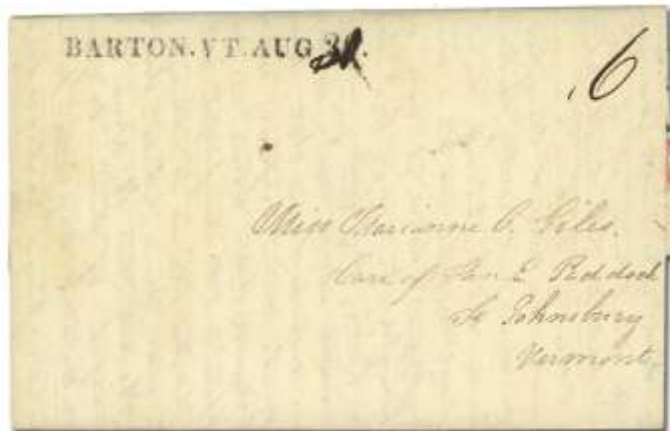 BARTON. VT. AUG
6
Miss Marianne C. Giles.
Care of
St Johnsbury
Vermont.